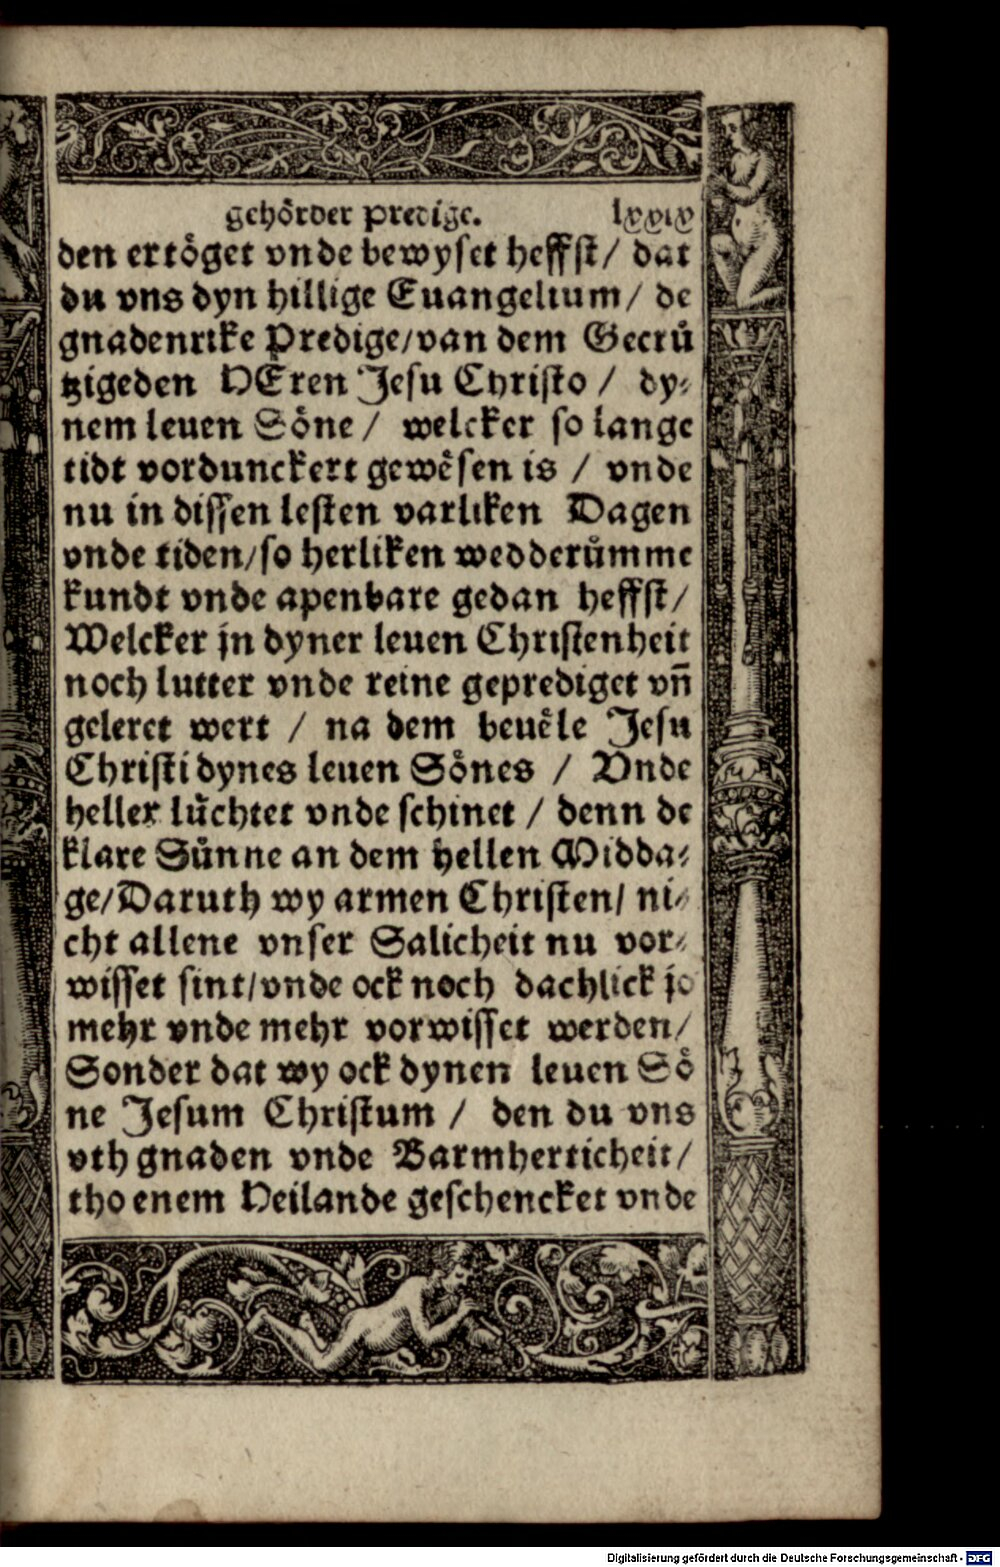 gehoͤrder predige. lxxix
den ertoͤget vnde bewyset heffst/ dat
du vns dyn hillige Euangelium/ de
gnadenrike Predige/van dem Gecruͤ
tzigeden HEren Jesu Christo / dy⸗
nem leuen Soͤne / welcker so lange
tidt vordunckert geweͤsen is / vnde
nu in dissen lesten varliken Dagen
vnde tiden/so herliken wedderuͤmme
kundt vnde apenbare gedan heffst/
Welcker jn dyner leuen Christenheit
noch lutter vnde reine geprediget vn̄
geleret wert / na dem beueͤle Jesu
Christi dynes leuen Soͤnes / Vnde
heller luͤchtet vnde schinet / denn de
klare Suͤnne an dem hellen Midda⸗
ge/Daruth wy armen Christen/ ni⸗
cht allene vnser Salicheit nu vor⸗
wisset sint/vnde ock noch dachlick jo
mehr vnde mehr vorwisset werden/
Sonder dat wy ock dynen leuen Soͤ
ne Jesum Christum / den du vns
vth gnaden vnde Barmherticheit/
tho enem Heilande geschencket vnde
Digitalisierung gefördert durch die Deutsche Forschungsgemeinschaft - DFG